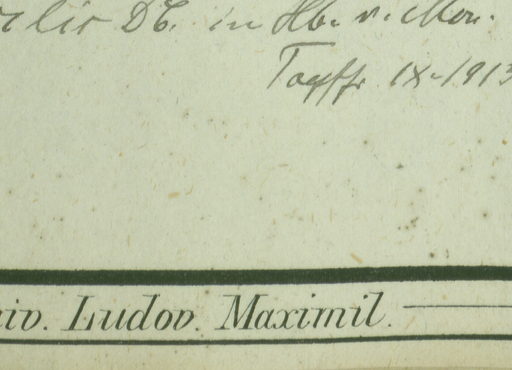 DC. in Hb. v. Mon.
Toepffr IX-1913
iv. Ludov. Maximil.